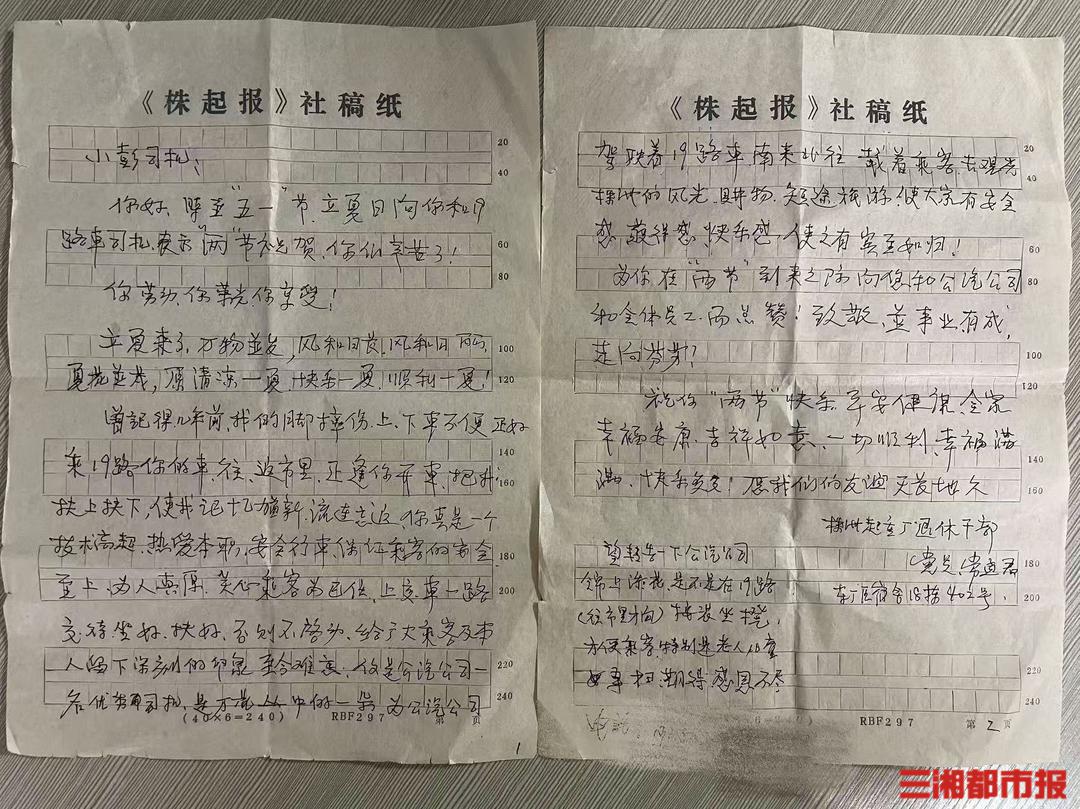 《株起报》社稿纸
20
小彭司机:
40
你好、际至“五一”节、立夏日向你和19
路车司机、表示“两”节祝贺、你们辛苦了!
60
80
你劳动、你幸光你享受!
立夏来了、万物並发,风和日
100
夏花並茂,愿清凉一夏、快乐一夏、顺利一夏!
120
曾記得几年前,我的脚摔伤、上、下車不便正好
乘19路你的车、往、返市里、正逢你开車、把我
140
160
扶上扶下,使我记忆犹新、流连忘返、你真是一个
技术高超、热爱本职、安全行車、保证乘客的安全
180
至上、为人真厚、关心乘客为己任、上交車一路
200
交待坐好、扶好、否则不啓动、给予大乘客及本
人留下深刻的印象至今难忘;你是公汽公司一
220
名优秀司机,是万花丛中的一朵、为公汽公司
240
(40×6=240) RBF297 第 页
1
《株起报》社稿纸
驾驶着19路車南来北往 载着乘客去观光
20
40
株洲的风光、购物、短途旅游、使大家有安全
感、获得感、快乐感,使之有宾至如归!
60
为你在“两节”到来之际向您和公汽公司
80
和全体员工、而点赞!致敬、並事业有成,
走向芬芳?
100
120
祝你“两节”快乐、平安健康、全家
幸福安康、吉祥如意、一切顺利、幸福满
140
满、快乐多多!愿我们的友谊天长地久
160
株洲起重厂退休干部
望転告一下公汽公司
(党员)
180
锦上添花、是不是在19路
东厂区宿舍18栋402号、
200
(往市里方向)
安坐
方便乘客、特别是老人儿童
220
240
6=240) RBF297 第2页
三湘都市报